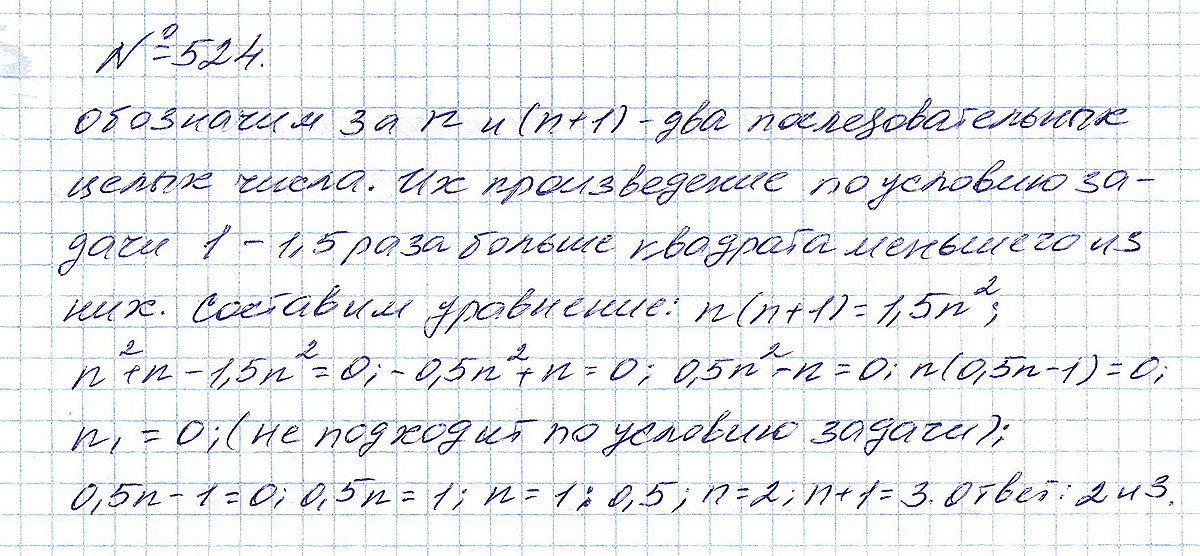 № 524.
Обозначим за n и (n+1) - два последовательных
целых числа. Их произведение по условию за-
дачи в 1,5 раза больше квадрата меньшего из
них. Составим уравнение: n(n+1)=1,5n²;
n²+n-1,5n²=0; -0,5n²+n=0; 0,5n²-n=0; n(0,5n-1)=0;
n₁=0; (не подходит по условию задачи);
0,5n-1=0; 0,5n=1; n=1:0,5; n=2; n+1=3. Ответ: 2 и 3.